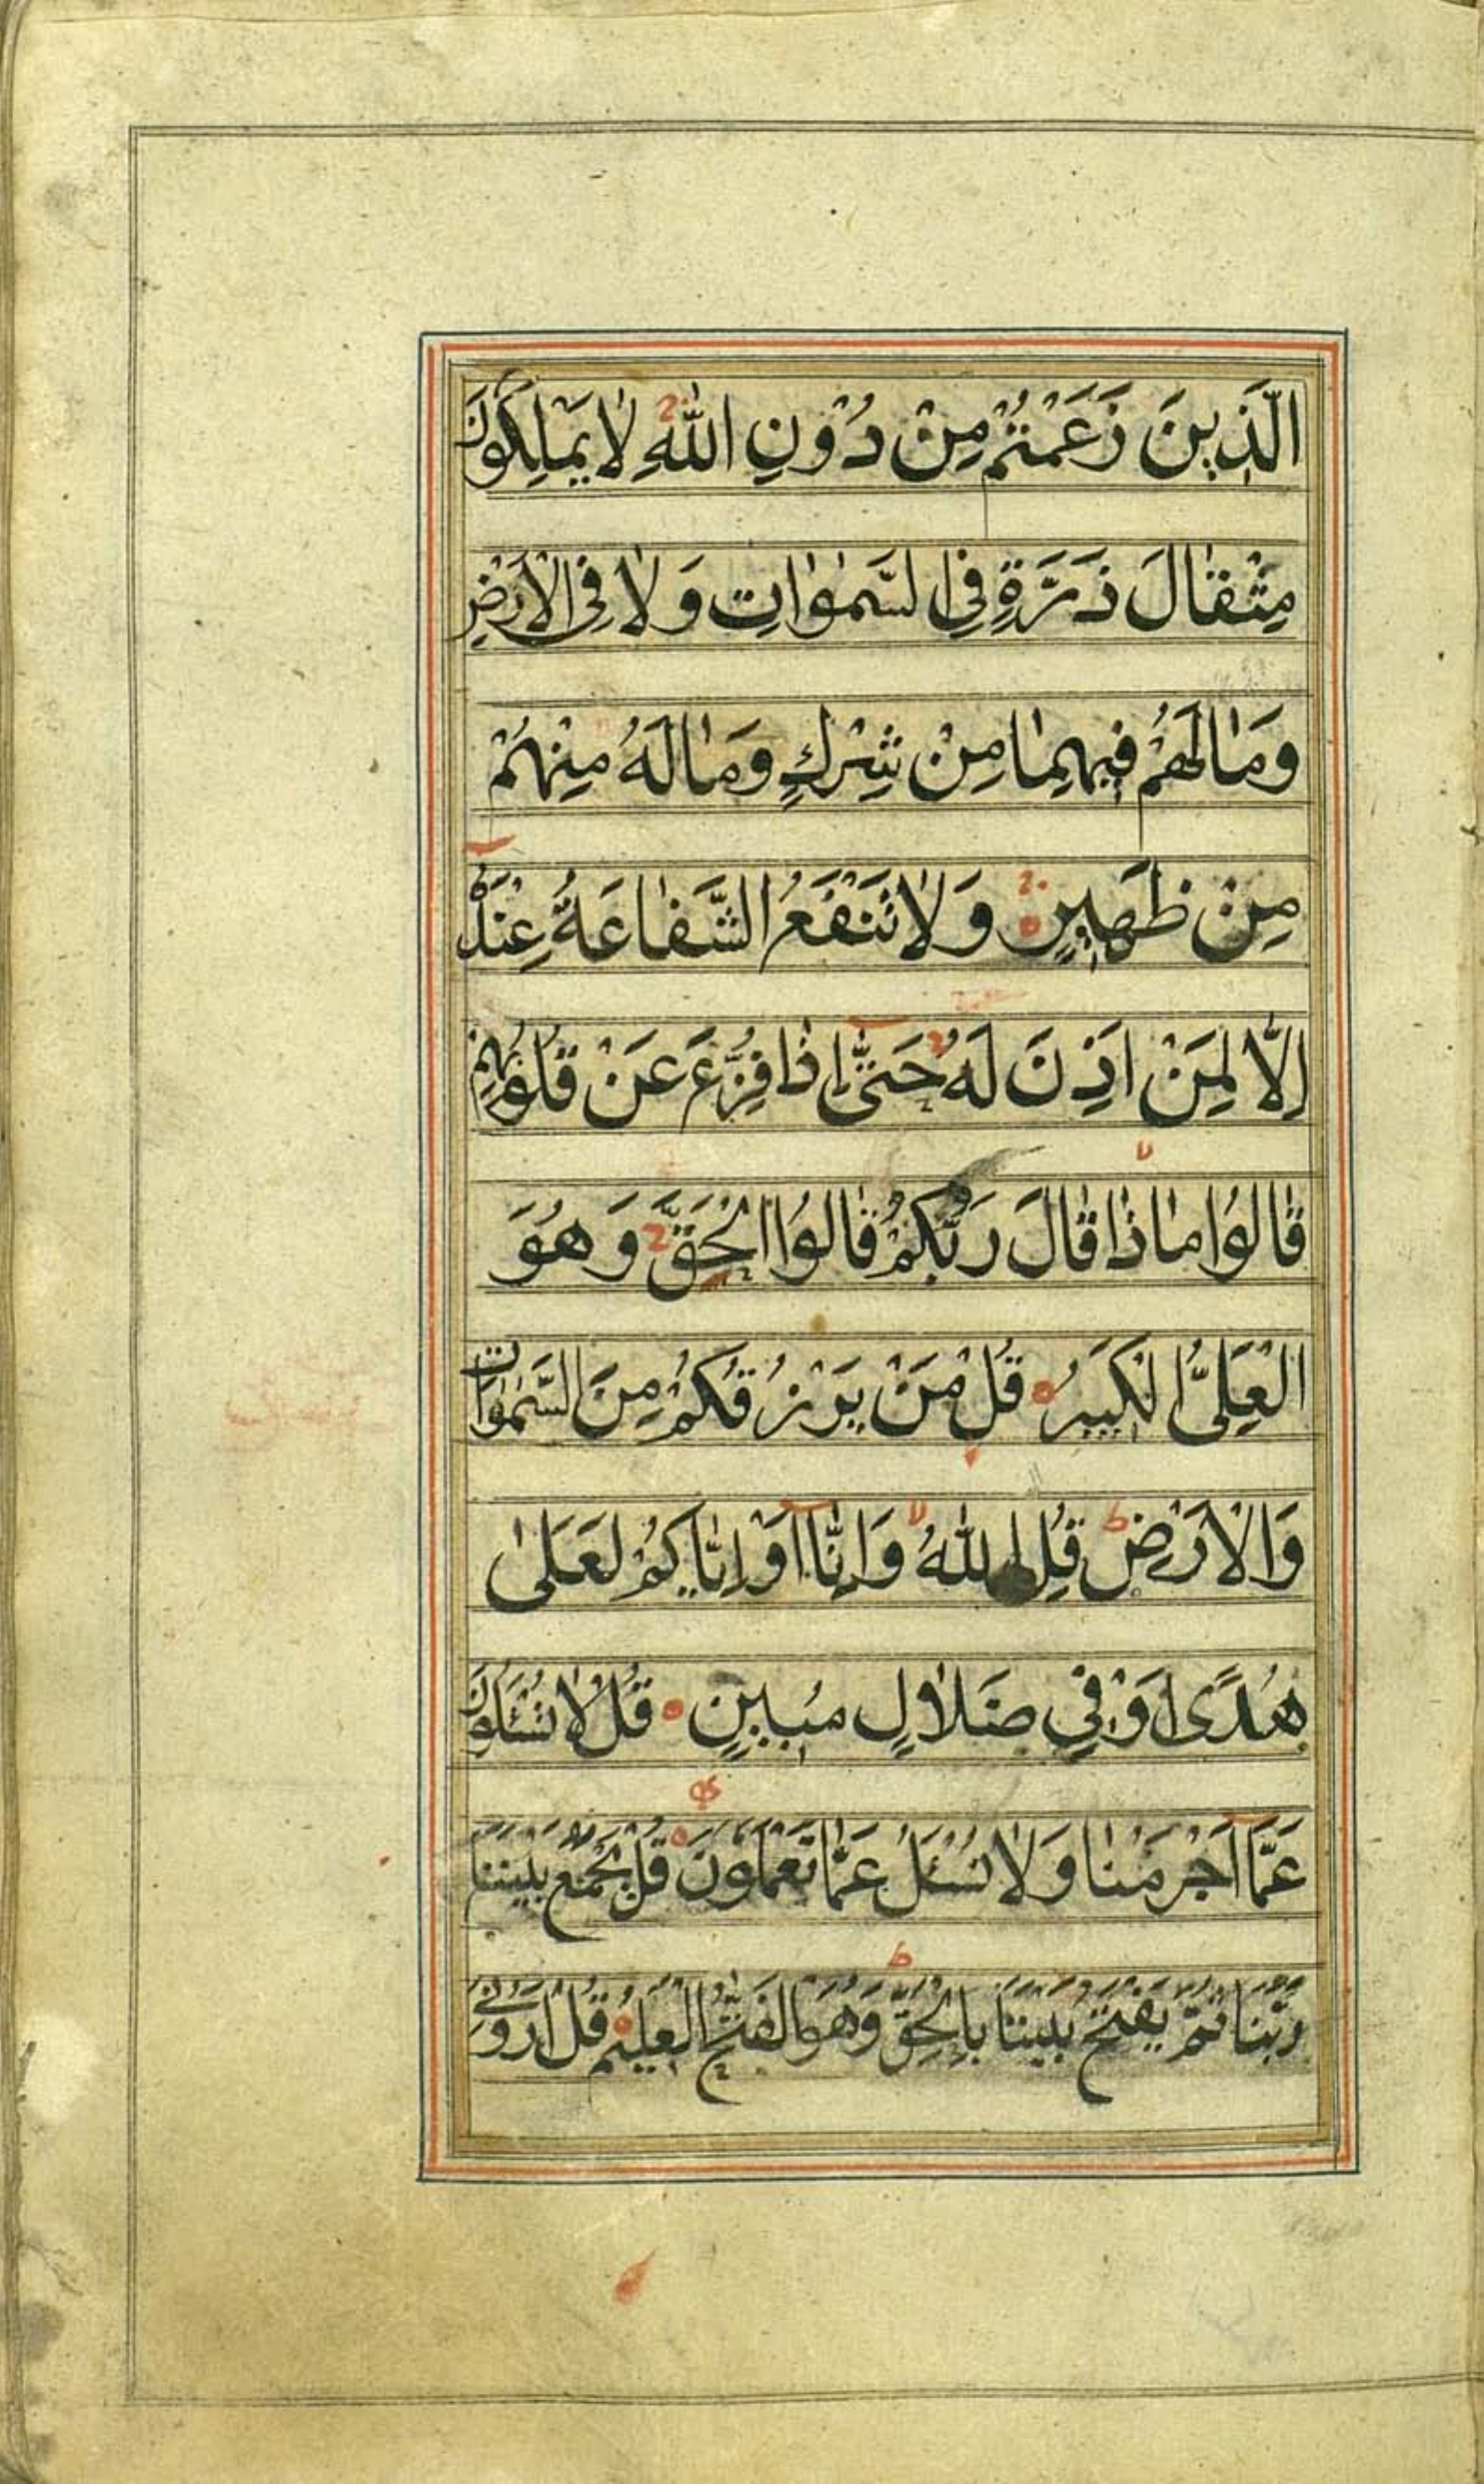 الَّذِينَ زَعَمْتُمْ مِنْ دُوْنِ اللّٰهِ لَا يَمْلِكُونَ
مِثْقَالَ ذَرَّةٍ فِي السَّمٰوَاتِ وَلَا فِي الْاَرْضِ
وَمَا لَهُمْ فِيهِمَا مِنْ شِرْكٍ وَمَا لَهُ مِنْهُمْ
مِنْ ظَهِيرٍ وَلَا تَنْفَعُ الشَّفَاعَةُ عِنْدَهُ
اِلَّا لِمَنْ اَذِنَ لَهُ حَتّٰى اِذَا فُزِّعَ عَنْ قُلُوبِهِمْ
قَالُوا مَاذَا قَالَ رَبُّكُمْ قَالُوا الْحَقَّ وَهُوَ
الْعَلِىُّ الْكَبِيرُ قُلْ مَنْ يَرْزُقُكُمْ مِنَ السَّمٰوَاتِ
وَالْاَرْضِ قُلِ اللّٰهُ وَاِنَّا اَوْ اِيَّاكُمْ لَعَلٰى
هُدًى اَوْ فِي ضَلَالٍ مُبِينٍ قُلْ لَا تُسْئَلُونَ
عَمَّا اَجْرَمْنَا وَلَا نُسْئَلُ عَمَّا تَعْمَلُونَ قُلْ يَجْمَعُ بَيْنَنَا
رَبُّنَا ثُمَّ يَفْتَحُ بَيْنَنَا بِالْحَقِّ وَهُوَ الْفَتَّاحُ الْعَلِيمُ قُلْ اَرُونِيَ